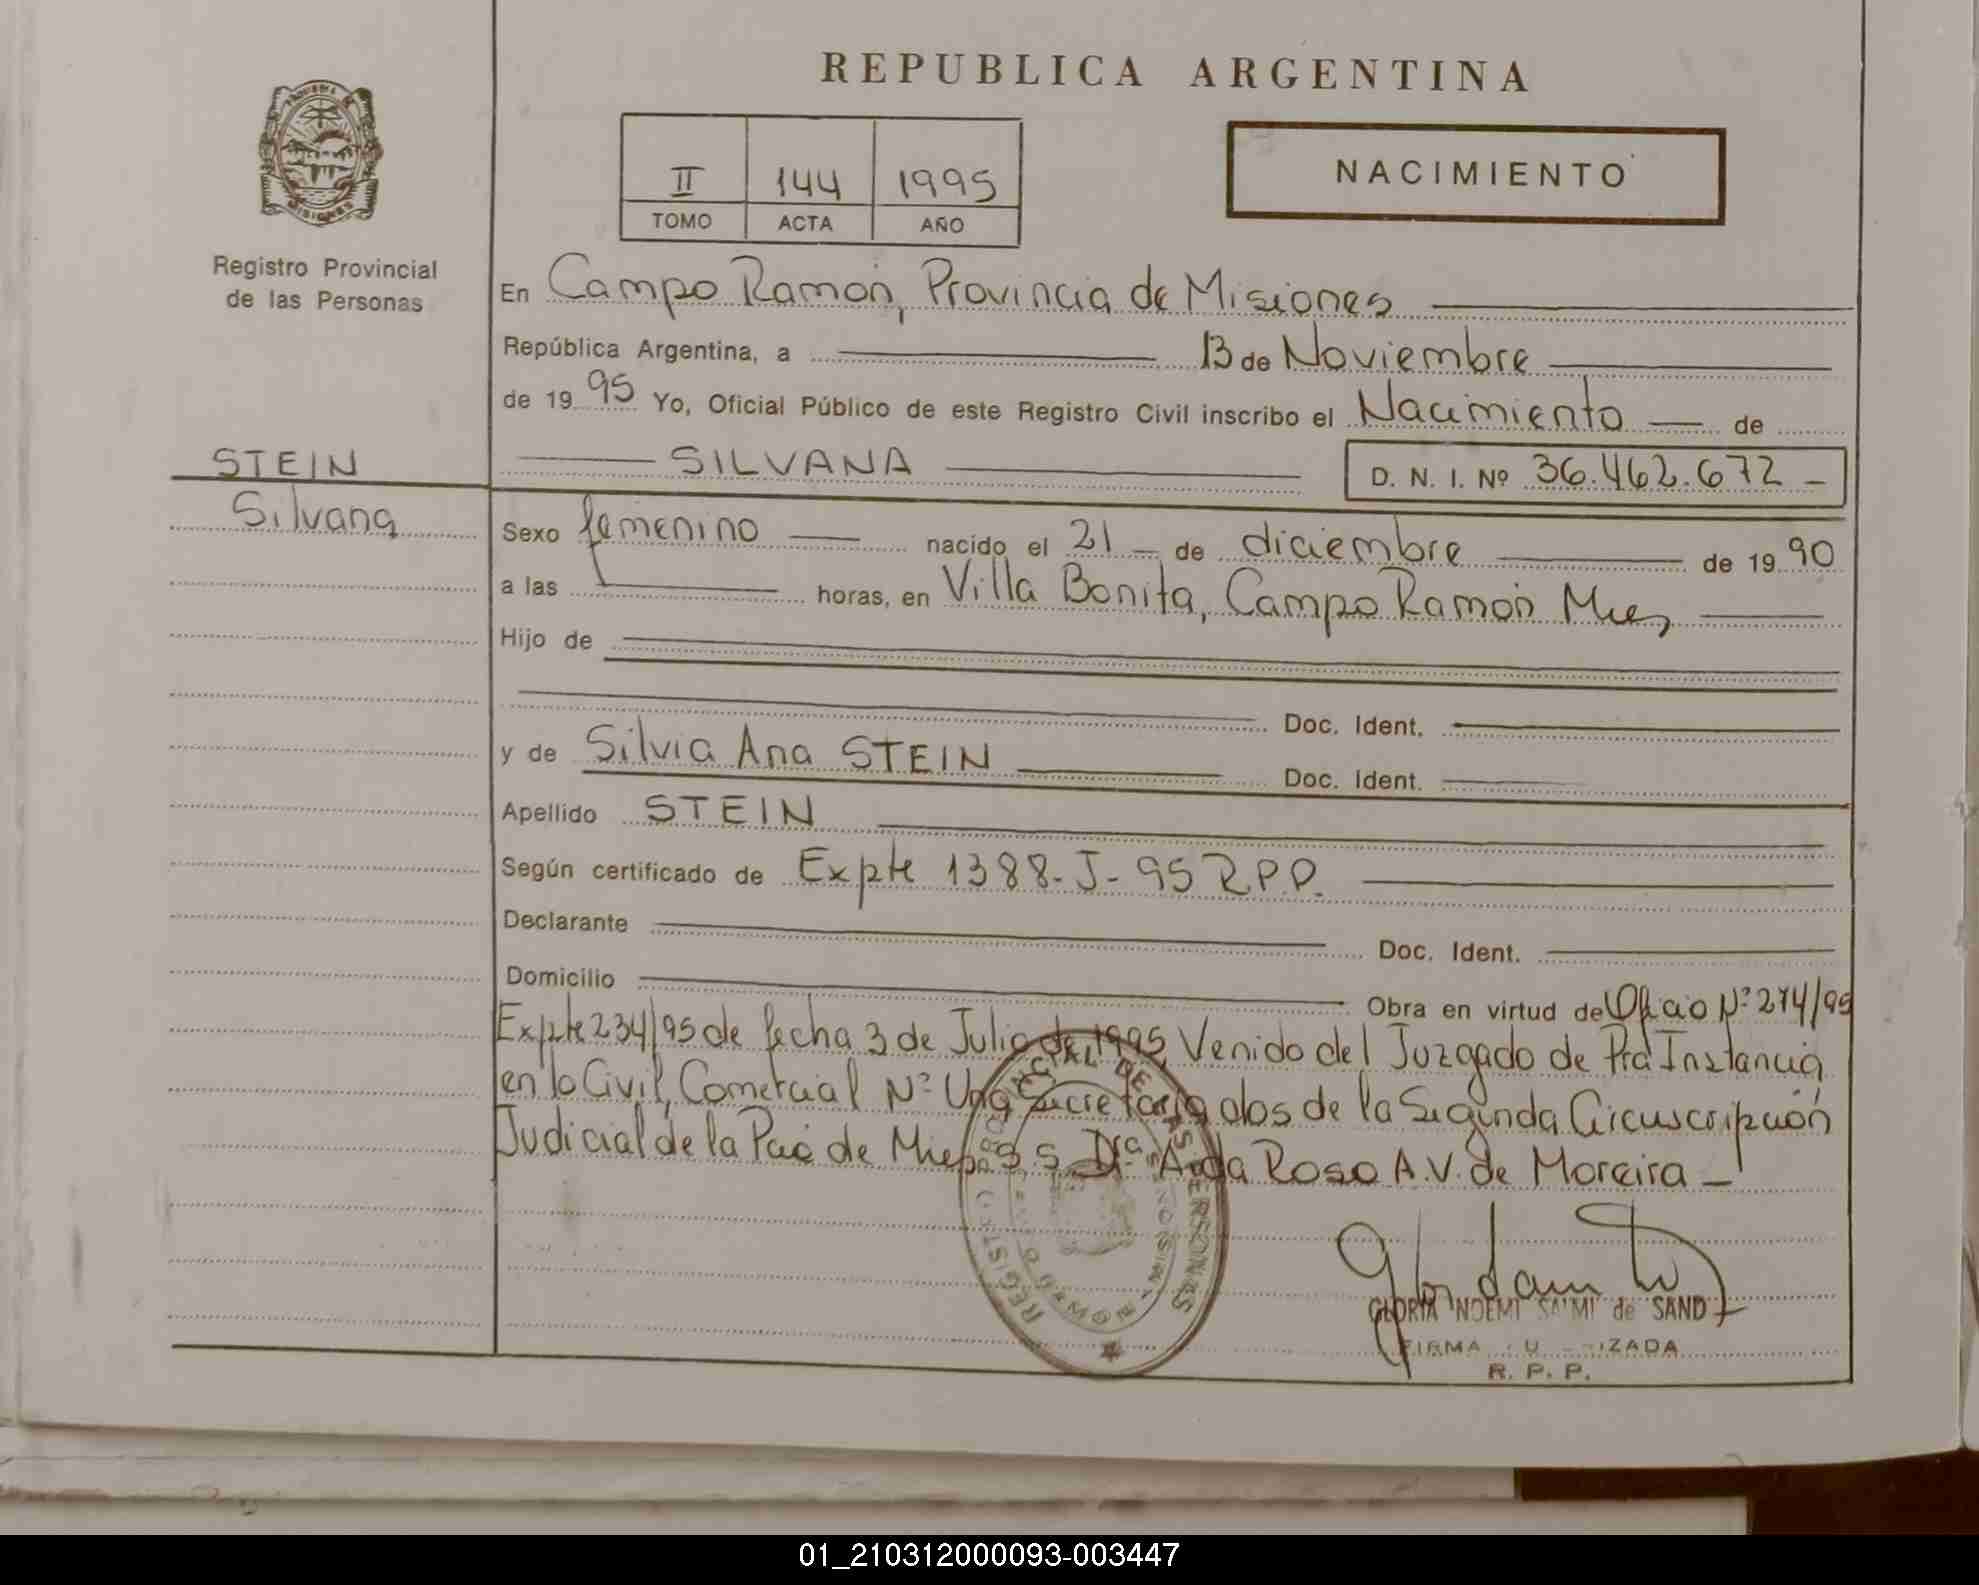 REPUBLICA ARGENTINA
PROVINCIA DE
MISIONES
Registro Provincial
de las Personas
II 144 1995
TOMO ACTA AÑO
NACIMIENTO
En Campo Ramón, Provincia de Misiones
República Argentina, a 13 de Noviembre
de 19 95 Yo, Oficial Público de este Registro Civil inscribo el Nacimiento de
STEIN
Silvana
SILVANA D. N. I. Nº 36.462.672
Sexo femenino nacido el 21 de diciembre de 19 90
a las horas, en Villa Bonita, Campo Ramón Mnes
Hijo de
Doc. Ident.
y de Silvia Ana STEIN Doc. Ident.
Apellido STEIN
Según certificado de Expte 1388-J-95 R.P.P.
Declarante Doc. Ident.
Domicilio Obra en virtud de Oficio Nº 274/95
Expte 234/95 de fecha 3 de Julio de 1995, Venido del Juzgado de Pra Instancia
en lo Civil, Comercial Nº Uno Secretaría dos de la Segunda Circuscripción
Judicial de la Pcia de Mnes S S Dra Aida Rosa A.V. de Moreira
REGISTRO PROVINCIAL DE LAS PERSONAS
MISIONES
GLORIA NOEMI de SAND
FIRMA
R. P. P.
01_210312000093-003447